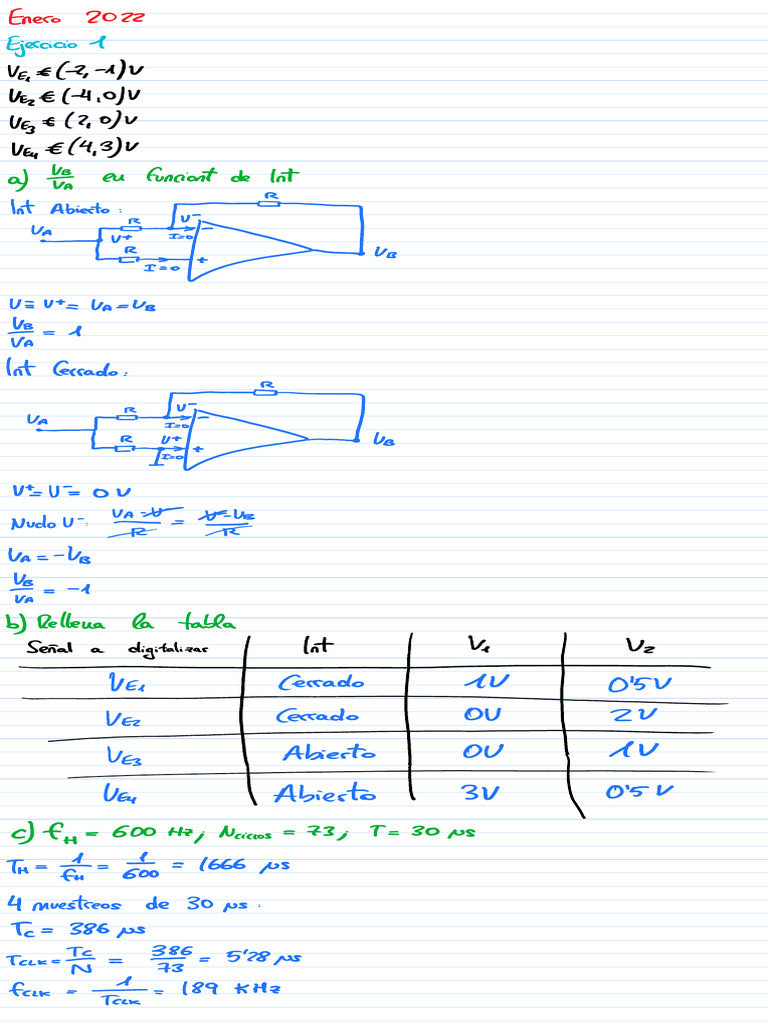 Enero 2022
Ejercicio 1
VE1 € (-2, -1)V
VE2 € (-4, 0)V
VE3 € (2, 0)V
VE4 € (4, 3)V
a) VB/VA en Funcion de Int
Int Abierto:
R
VA R V- −
V+ I=0
R +
I=0
VB
V≡ V+= VA=VB
VB/VA = 1
Int Cerrado:
R
VA R V- −
I=0
R V+ +
I=0
VB
V+= V-= 0V
Nudo V-: VA-V-/R = V--VB/R
VA = -VB
VB/VA = -1
b) Rellena la tabla
Señal a digitalizar Int V1 V2
VE1 Cerrado 1V 0'5V
VE2 Cerrado 0V 2V
VE3 Abierto 0V 1V
VE4 Abierto 3V 0'5V
c) fH = 600 Hz; Nciclos = 73; T = 30 μs
TH = 1/fH = 1/600 = 1666 μs
4 muestreos de 30 μs:
TC = 386 μs
TCLK = TC/N = 386/73 = 5'28 μs
fCLK = 1/TCLK = 189 KHz